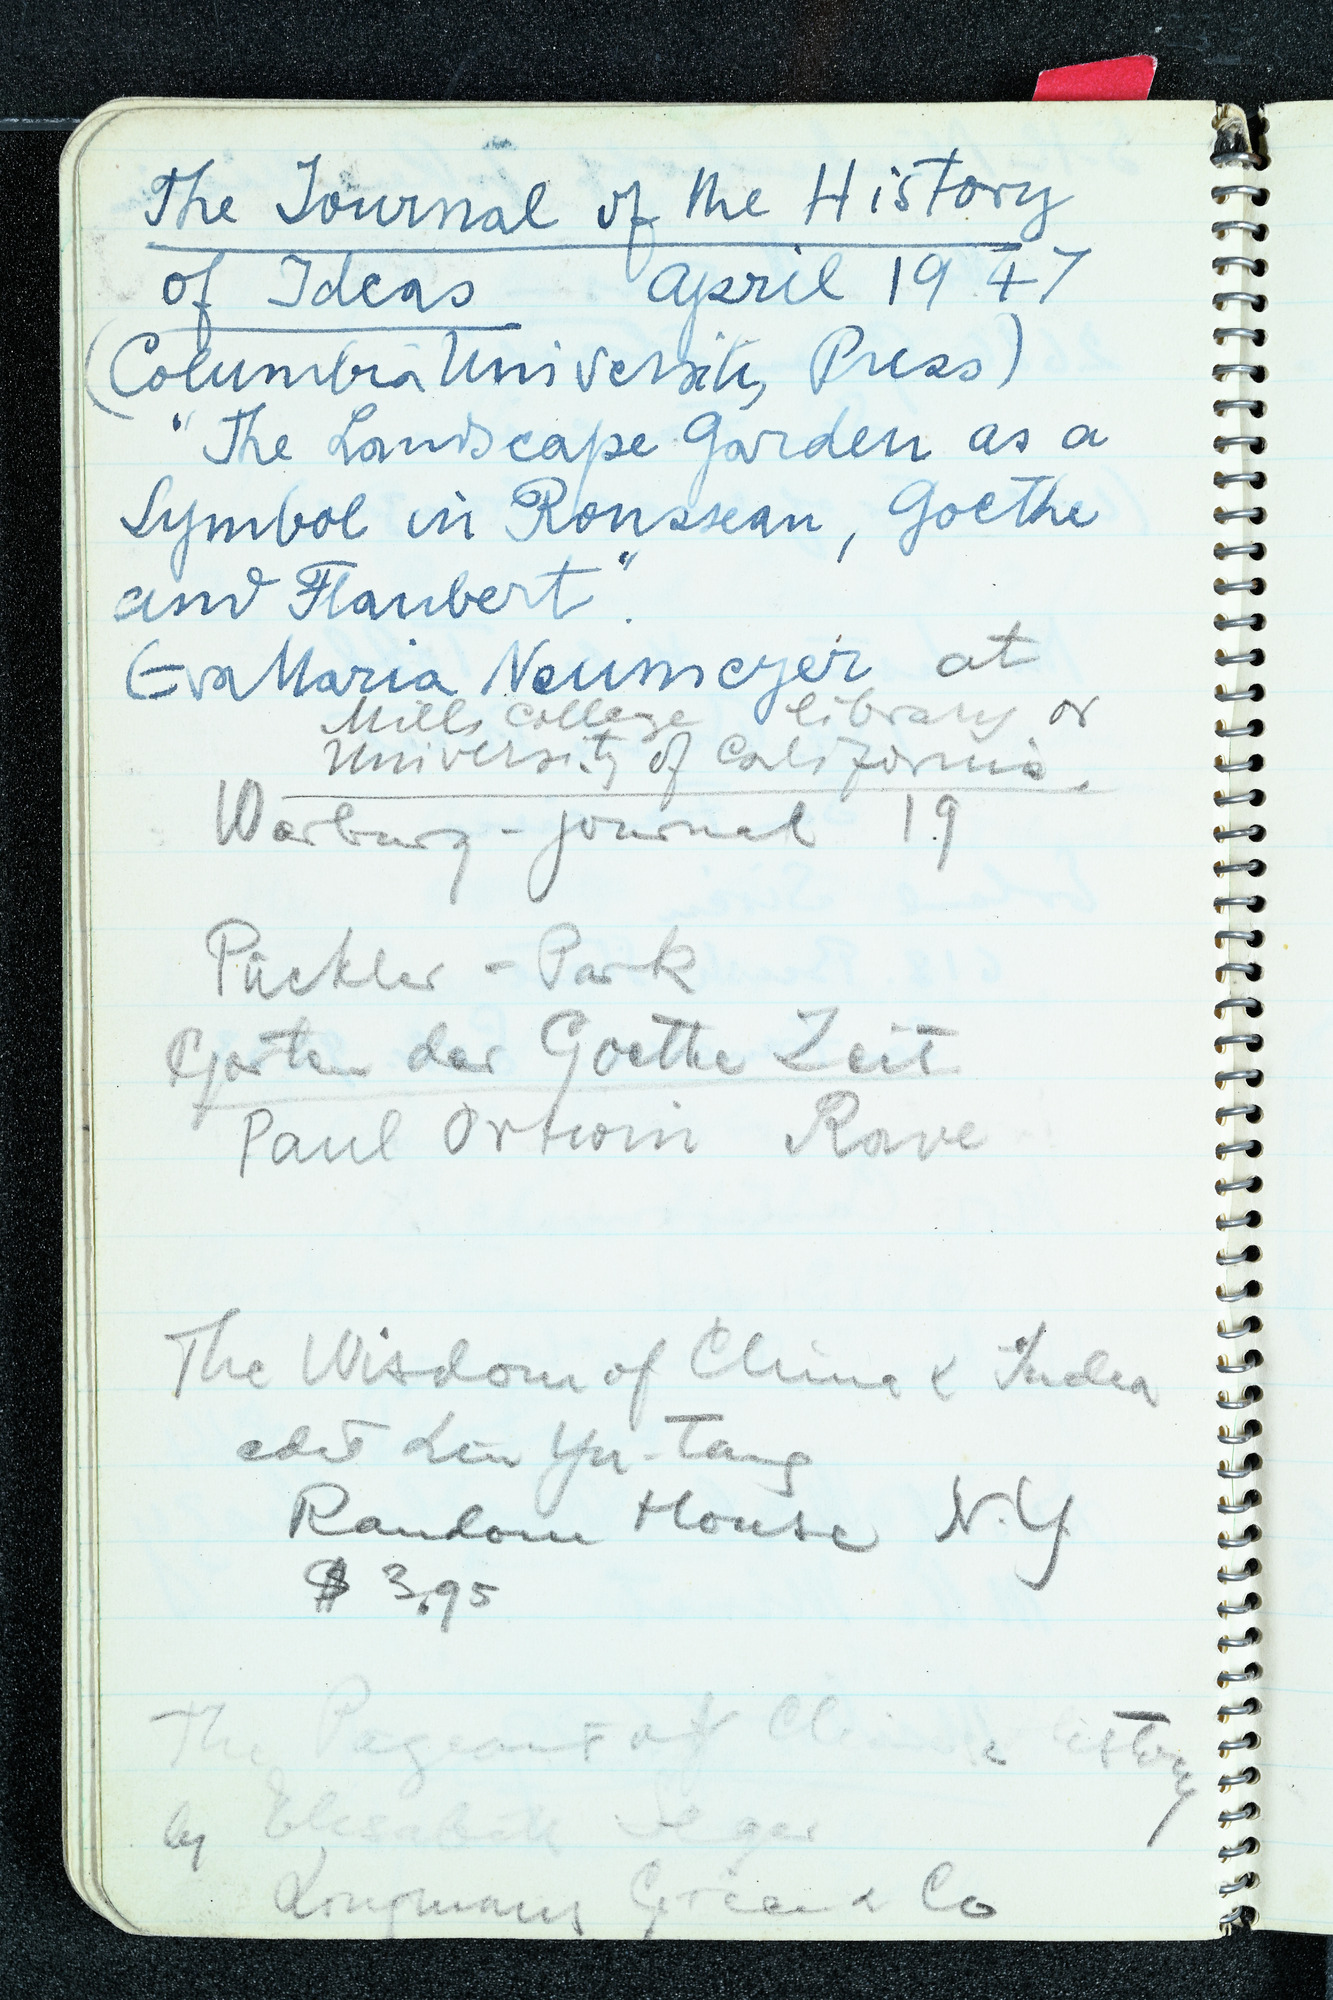 The Journal of the History
of Ideas April 1947
(Columbia University Press)
"The Landscape Garden as a
Symbol in Rousseau, Goethe
and Flaubert".
Eva Maria Neumeyer at
Mills College library or
University of California.
Warburg - journal 19
Pückler - Park
Gärten der Goethe Zeit
Paul Ortwin Rave
The Wisdom of China & India
edit Lin Yu-Tang
Random House N.Y
$ 3.95
The Pageant of Chinese History
by Elisabeth Seger
Longmans Green & Co